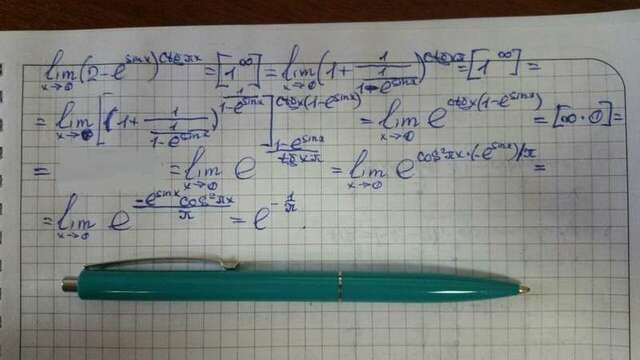 lim x→0 (2-e^(sinx))^(ctg πx) = [1^∞] = lim x→0 (1+1/(1/(1-e^(sinx))))^(ctg πx) = [1^∞] =
= lim x→0 [(1+1/(1/(1-e^(sinx))))^(1/(1-e^(sinx)))]^(ctg πx(1-e^(sinx))) = lim x→0 e^(ctg πx(1-e^(sinx))) = [∞·0] =
= = lim x→0 e^((1-e^(sinx))/(tg xπ)) = lim x→0 e^(cos²πx·(-e^(sinx))/π) =
= lim x→0 e^((-e^(sinx) cos²πx)/π) = e^(-1/π).